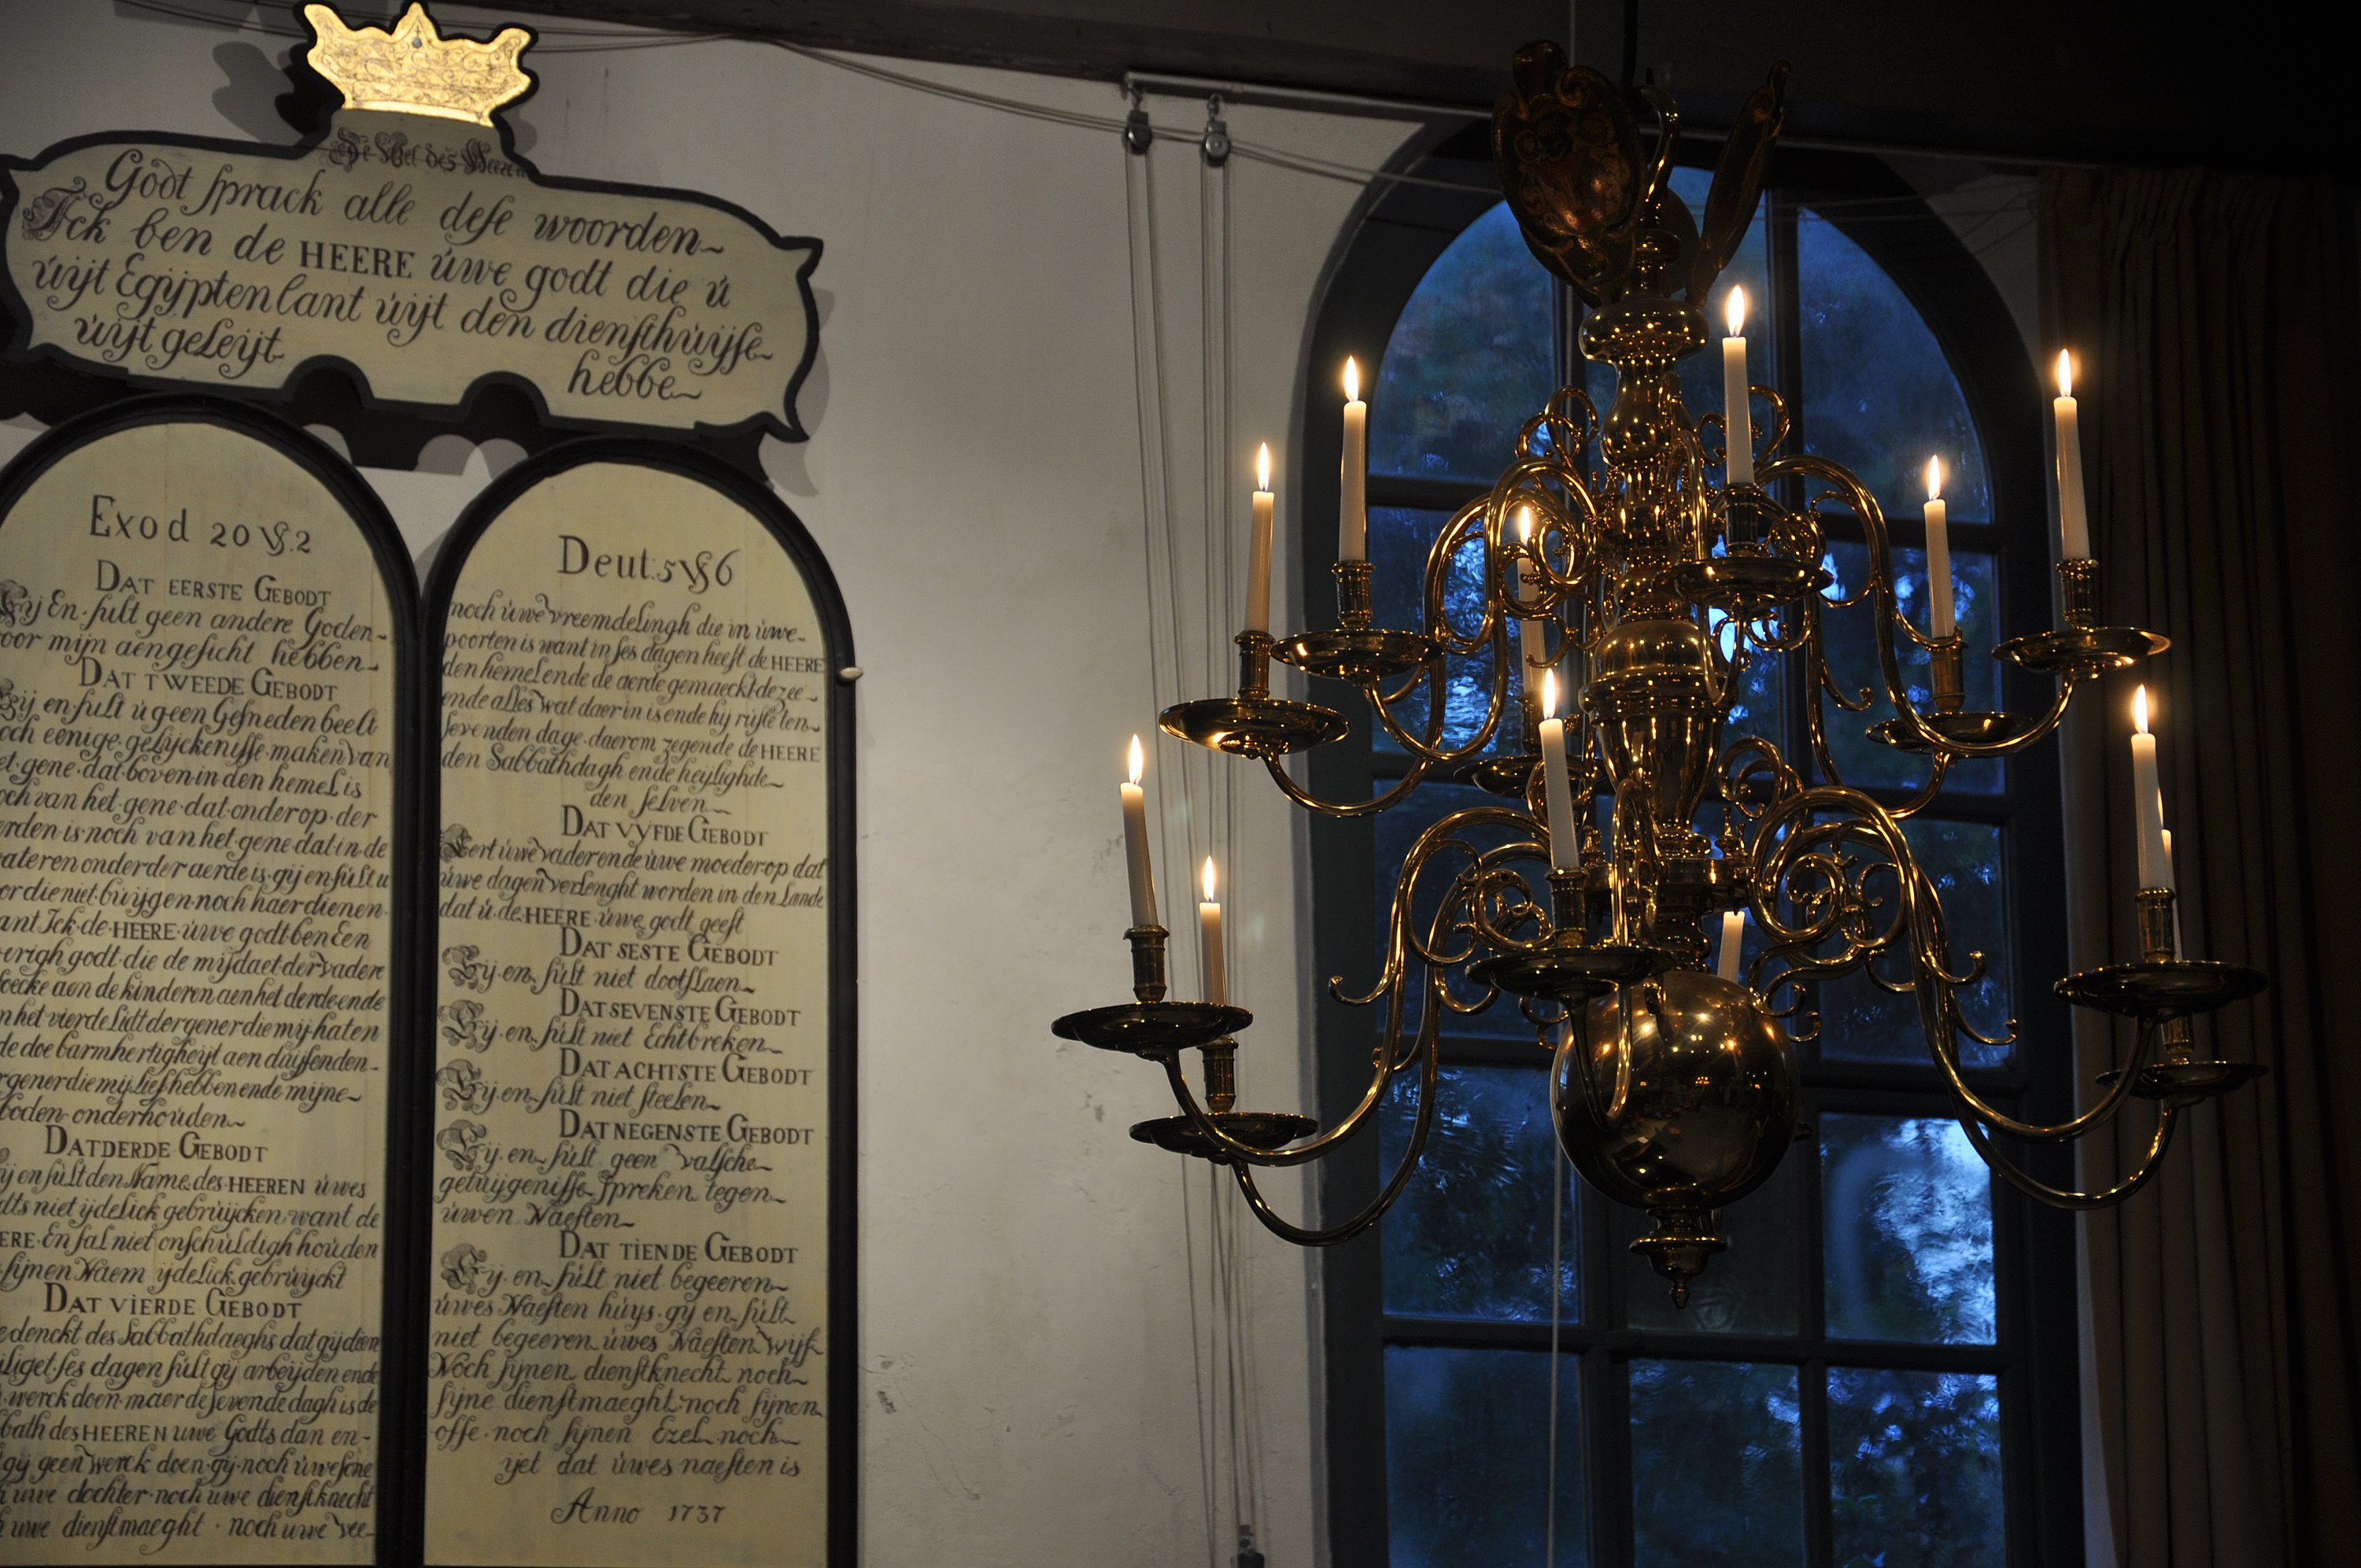 De Wet des Heeren
Godt sprack alle dese woorden
Ick ben de HEERE uwe godt die u
uijt Egijpten lant uijt den diensthuijse
uijt geleijt
hebbe
Exod 20 Vs. 2
DAT EERSTE GEBODT
Gij En sult geen andere Goden
voor mijn aengesicht hebben
DAT TWEEDE GEBODT
Gij en sult u geen Gesneden beelt
noch eenige gelijckenisse maken van
het gene dat boven in den hemel is
noch van het gene dat onder op der
erden is noch van het gene dat in de
wateren onder der aerde is gij en sult u
voor die niet buijgen noch haer dienen
want Ick de HEERE uwe godt ben Een
iverigh godt die de mijdaet der vadere
soecke aen de kinderen aen het derde ende
in het vierde lidt der gener die mij haten
de doe barmhertigheijt aen duijsenden
der gener die mij lief hebben ende mijne
geboden onderhouden
DAT DERDE GEBODT
Gij en sult den Name des HEEREN uwes
godts niet ijdelick gebruijcken want de
HEERE En sal niet onschuldigh houden
sijnen Naem ijdelick gebruijckt
DAT VIERDE GEBODT
Gedenckt des Sabbathdaeghs dat gij dien
heiliget ses dagen sult gij arbeijden ende
werck doen maer de sevende dagh is de
Sabbath des HEEREN uwe Godts dan en
gij geen werck doen gij noch uwe sone
uwe dochter noch uwe dienstknecht
uwe dienstmaeght noch uwe vee
Deut: 5 Vs 6
noch uwe vreemdelingh die in uwe
poorten is want in ses dagen heeft de HEERE
den hemel ende de aerde gemaeckt de zee
ende alles wat daer in is ende hij ruste ten
sevenden dage daerom zegende de HEERE
den Sabbathdagh ende heijlighde
den selven
DAT VYFDE GEBODT
Eert uwe vader ende uwe moeder op dat
uwe dagen verlenght worden in den Lande
dat u de HEERE uwe godt geeft
DAT SESTE GEBODT
Gij en sult niet dootslaen
DAT SEVENSTE GEBODT
Gij en sult niet Echtbreken
DAT ACHTSTE GEBODT
Gij en sult niet steelen
DAT NEGENSTE GEBODT
Gij en sult geen valsche
getuijgenisse spreken tegen
uwen Naesten
DAT TIENDE GEBODT
Gij en sult niet begeeren
uwes Naesten huys gij en sult
niet begeeren uwes Naesten wijf
Noch sijnen dienstknecht noch
sijne dienstmaeght noch sijnen
osse noch sijnen Ezel noch
ijet dat uwes naesten is
Anno 1737